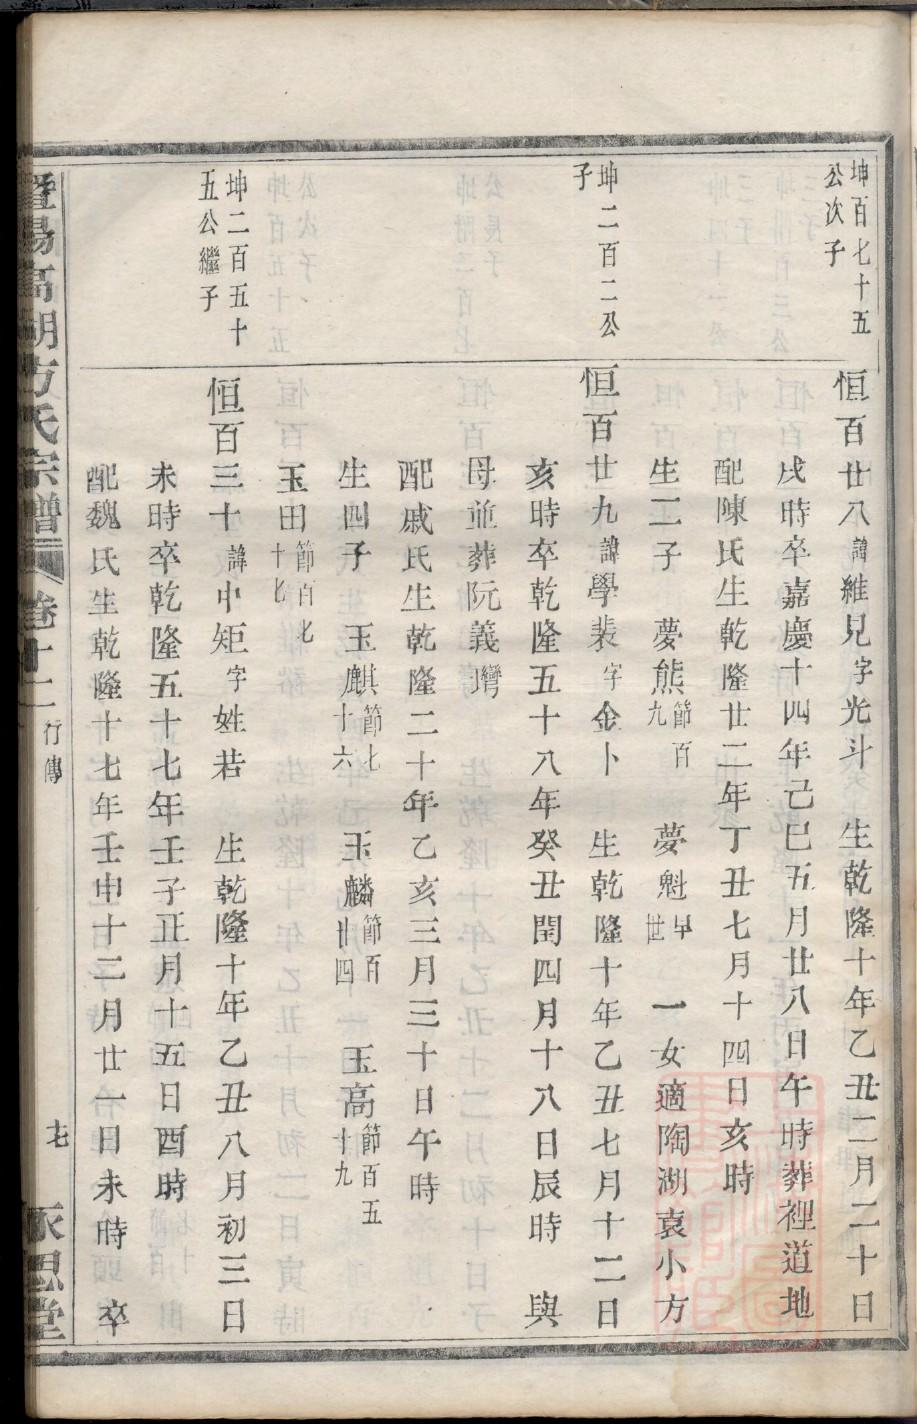 坤百七十五
公次子
恒百廿八諱維見字光斗 生乾隆十年乙丑二月二十日
戌時卒嘉慶十四年己巳五月廿八日午時葬裡道地
配陳氏生乾隆廿二年丁丑七月十四日亥時
生二子 夢熊節百九 夢魁早世 一女適陶湖袁小方
坤二百二公
子
恒百廿九諱學裴字金卜 生乾隆十年乙丑七月十二日
亥時卒乾隆五十八年癸丑閏四月十八日辰時 與
母並葬阮義灣
配戚氏生乾隆二十年乙亥三月三十日午時
生四子 玉麒節七十六 玉麟節百廿四 玉高節百五十九
玉田節百七十七
坤二百五十
五公繼子
恒百三十諱中矩字姓若 生乾隆十年乙丑八月初三日
未時卒乾隆五十七年壬子正月十五日酉時
配魏氏生乾隆十七年壬申十二月廿一日未時 卒
暨陽高湖方氏宗譜 卷十一 行傳 永思堂